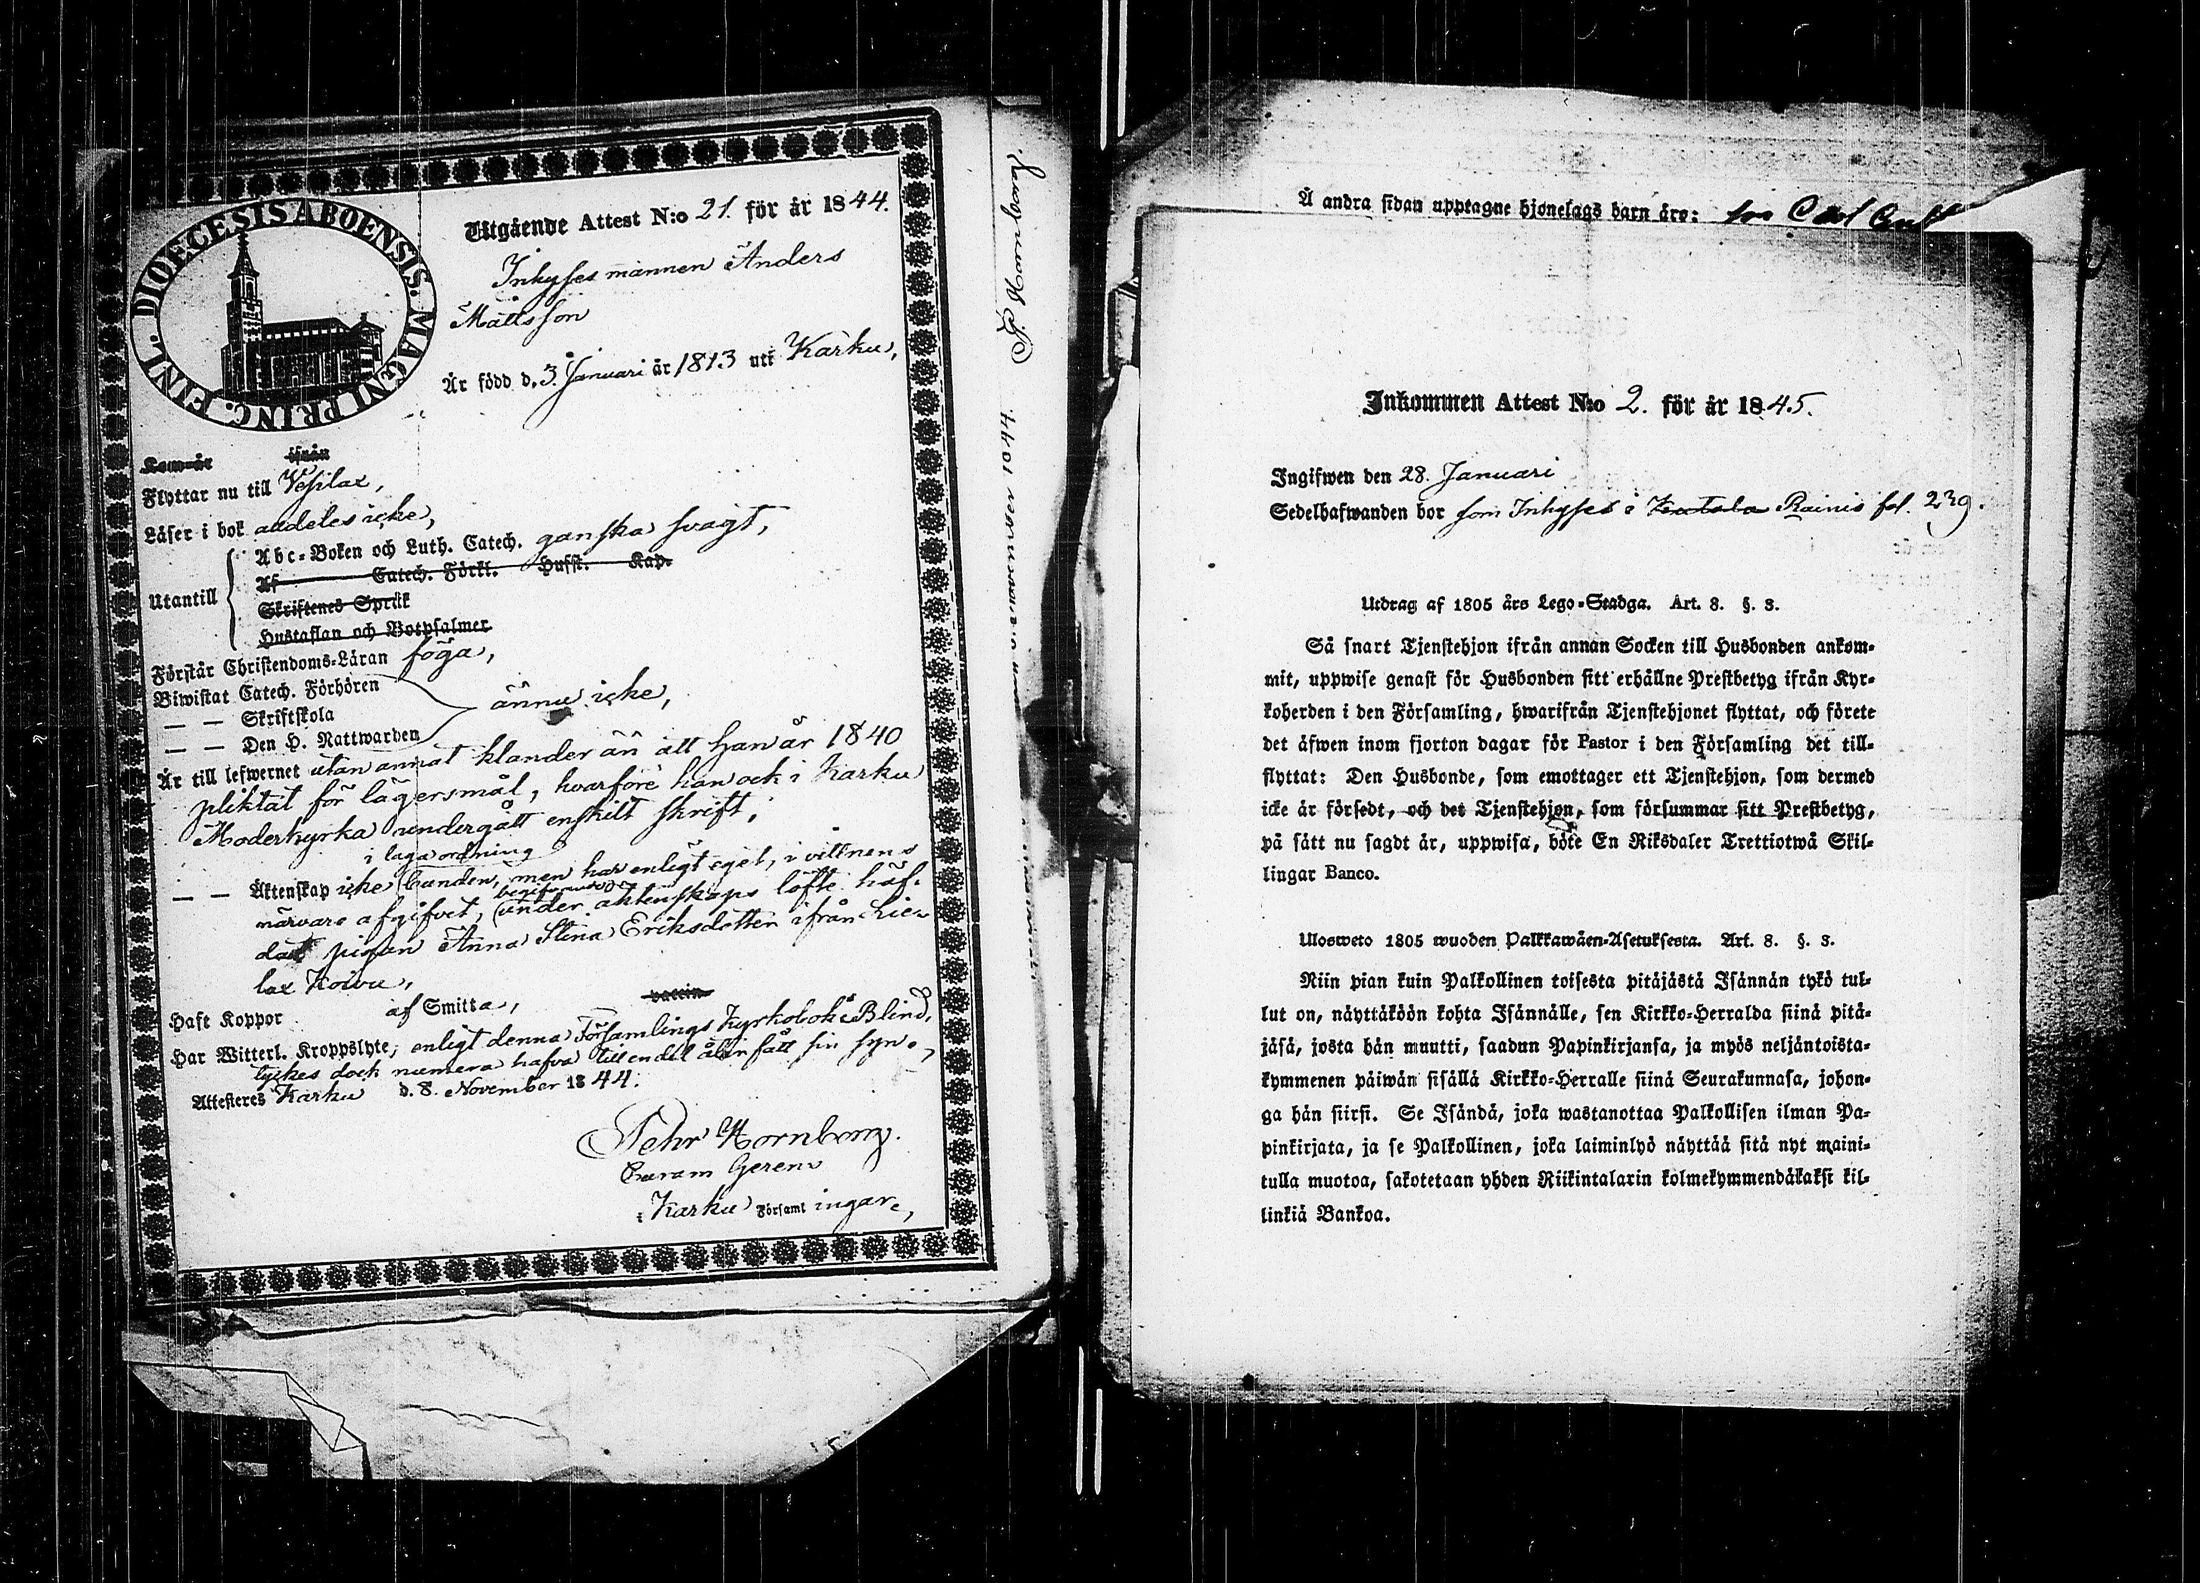 DIOECESIS ABOENSIS. MAGNI PRINC. FINL.
Utgående Attest N:o 21. för år 1844.
Inhyses mannen Anders
Mattsson
Är född d. 3. Januari år 1813 uti Karku,
Kom år ifrån
Flyttar nu till Vesilax,
Läser i bok aldeles icke,
Utantill
Abc-Boken och Luth. Catech. ganska svagt,
Af Catech. Förkl. Hufst. Kap.
Skriftenes Språk
Hustaflan och Botpsalmer
Förstår Christendoms-Läran föga,
Biwistat Catech. Förhören
— — Skriftskola
ännu icke,
— — Den H. Nattwarden
Är till lefwernet utan annat klander än att han år 1840
pliktat för lägersmål, hvarföre han ock i Karku
Moderkyrka undergått enskilt skrift,
i laga ordning
— — Äktenskap icke bunden, men har enligt eget, i vittnens
närvaro afgifvet, under äktenskaps löfte häf-
dat pigan Anna Stina Eriksdotter ifrån Lie-
lax Koivu,
Haft Koppor af Smitta, vaccin
Har Witterl. Kroppslyte, enligt denna Församlings Kyrkobok: Blind,
tyckes dock numera hafva till en del åter fått sin syn.,
Attesteras Karku d. 8. November 1844.
Pehr Hornborg.
Curam Gerens
i Karku Församlingar,
Å andra sidan upptagne hjonelags barn äro: son Carl
Inkommen Attest N:o 2. för år 1845.
Ingifwen den 28. Januari
Sedelhafwanden bor som Inhyses i Rainis fol. 239.
Utdrag af 1805 års Lego-Stadga. Art. 8. §. 3.
Så snart Tjenstehjon ifrån annan Socken till Husbonden ankom-
mit, uppwise genast för Husbonden sitt erhållne Prestbetyg ifrån Kyr-
koherden i den Församling, hwarifrån Tjenstehjonet flyttat, och förete
det äfwen inom fjorton dagar för Pastor i den Församling det till-
flyttat: Den Husbonde, som emottager ett Tjenstehjon, som dermed
icke är försedt, och det Tjenstehjon, som försummar sitt Prestbetyg,
på sätt nu sagdt är, uppwisa, böte En Riksdaler Trettiotwå Skil-
lingar Banco.
Ulosweto 1805 wuoden Palkkawäen-Asetuksesta. Art. 8. §. 3.
Niin pian kuin Palkollinen toisesta pitäjästä Isännän tykö tul-
lut on, näyttäköön kohta Isännälle, sen Kirkko-Herralda siinä pitä-
jäsä, josta hän muutti, saadun Papinkirjansa, ja myös neljäntoista-
kymmenen päiwän sisällä Kirkko-Herralle siinä Seurakunnasa, johon-
ga hän siirsi. Se Isändä, joka wastanottaa Palkollisen ilman Pa-
pinkirjata, ja se Palkollinen, joka laiminlyö näyttää sitä nyt maini-
tulla muotoa, sakotetaan yhden Riikintalarin kolmekymmendäkaksi kil-
linkiä Bankoa.